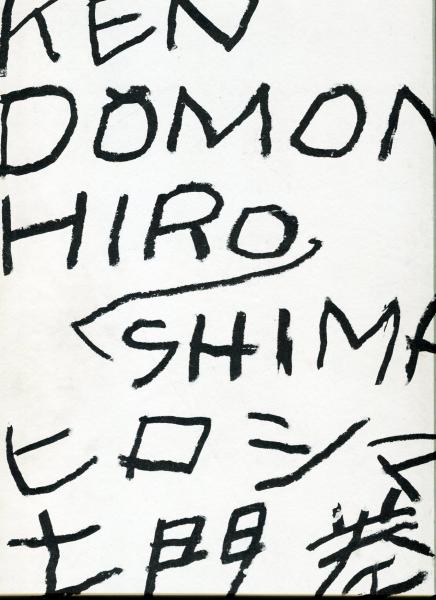 KEN
DOMON
HIRO
SHIMA
ヒロシマ
土門拳